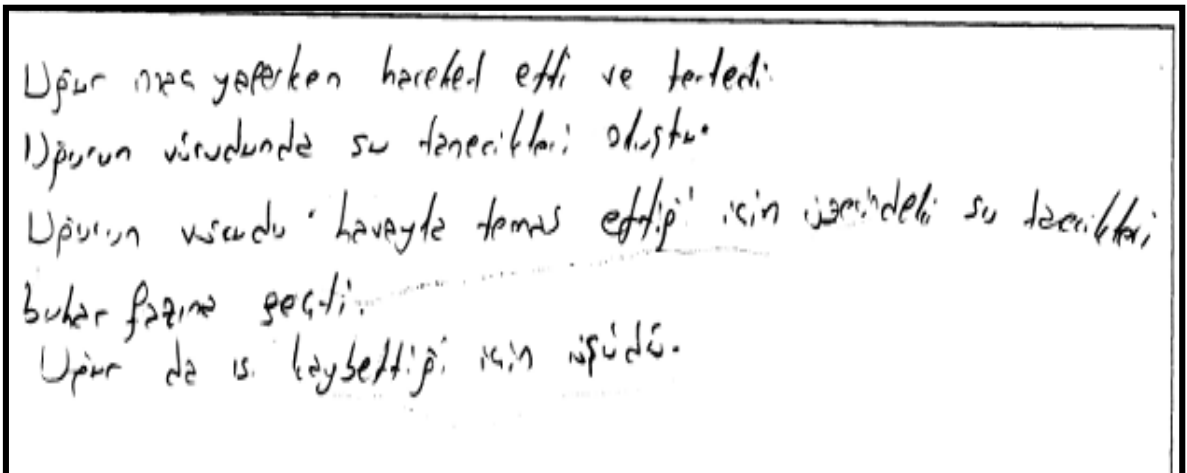 Uğur maç yaparken hareket etti ve terledi.
Uğurun vücudunda su tanecikleri oluştu.
Uğurun vücudu havayla temas ettiği için üzerindeki su taecikleri
buhar fazına geçti.
Uğur da ısı kaybettiği için üşüdü.